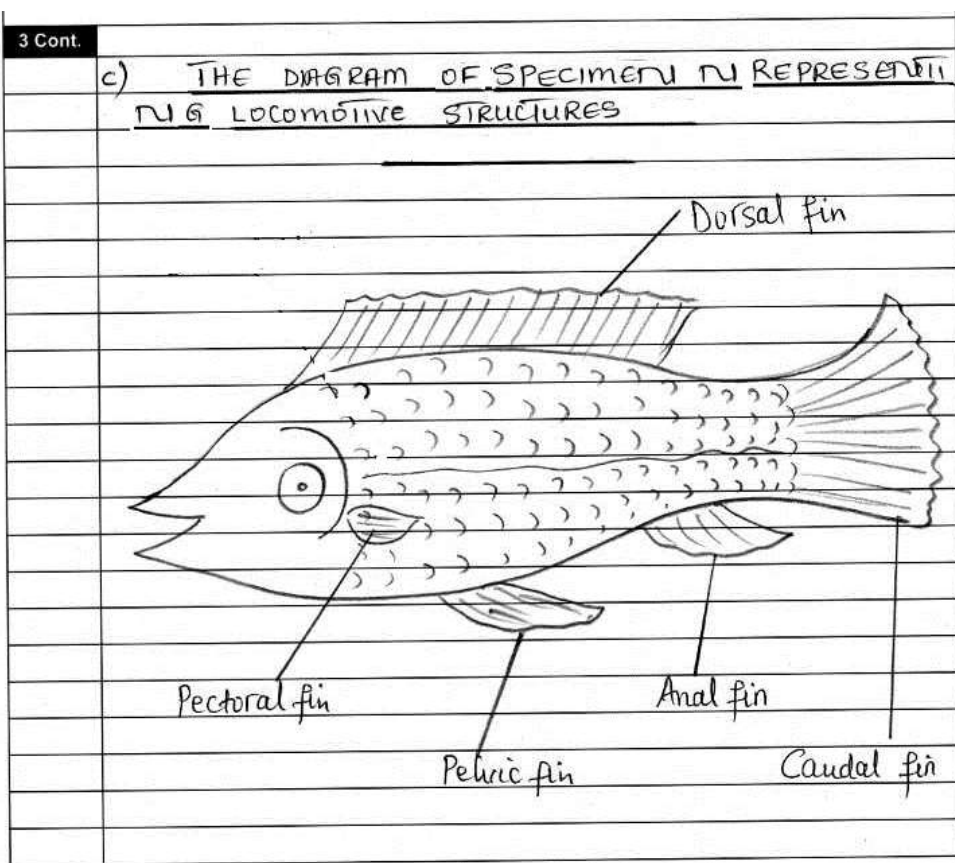 3 Cont.
c) THE DIAGRAM OF SPECIMEN N REPRESENTI
NG LOCOMOTIVE STRUCTURES
Dorsal fin
Pectoral fin
Anal fin
Pelvic fin
Caudal fin